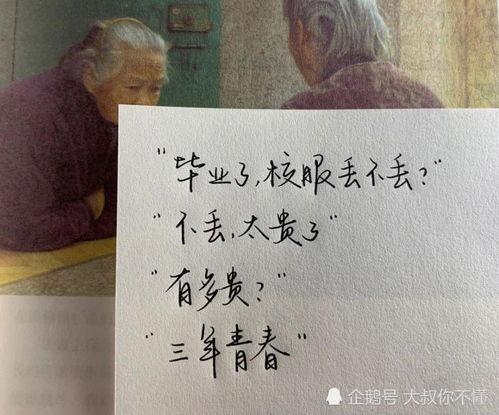 "毕业了,校服丢不丢?"
"不丢,太贵了"
"有多贵?"
"三年青春"
企鹅号 大叔你不懂